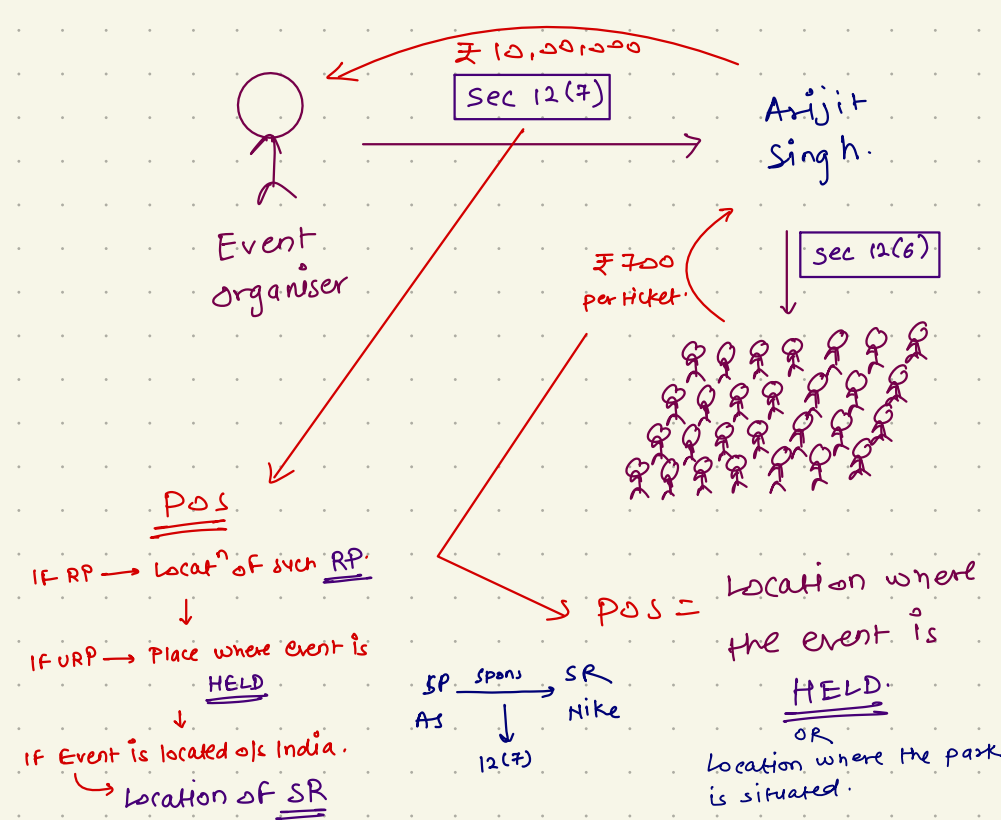 ₹ 10,00,000
Sec 12(7)
Arijit
Singh.
Event
organiser
₹700
per ticket.
Sec 12(6)
POS
IF RP → Locatⁿ of such RP.
↓
IF URP → Place where event is
HELD
↓
IF Event is located o/s India.
Location of SR
SP spons SR
AS Nike
12(7)
POS = Location where
the event is
HELD.
OR
Location where the park
is situated.